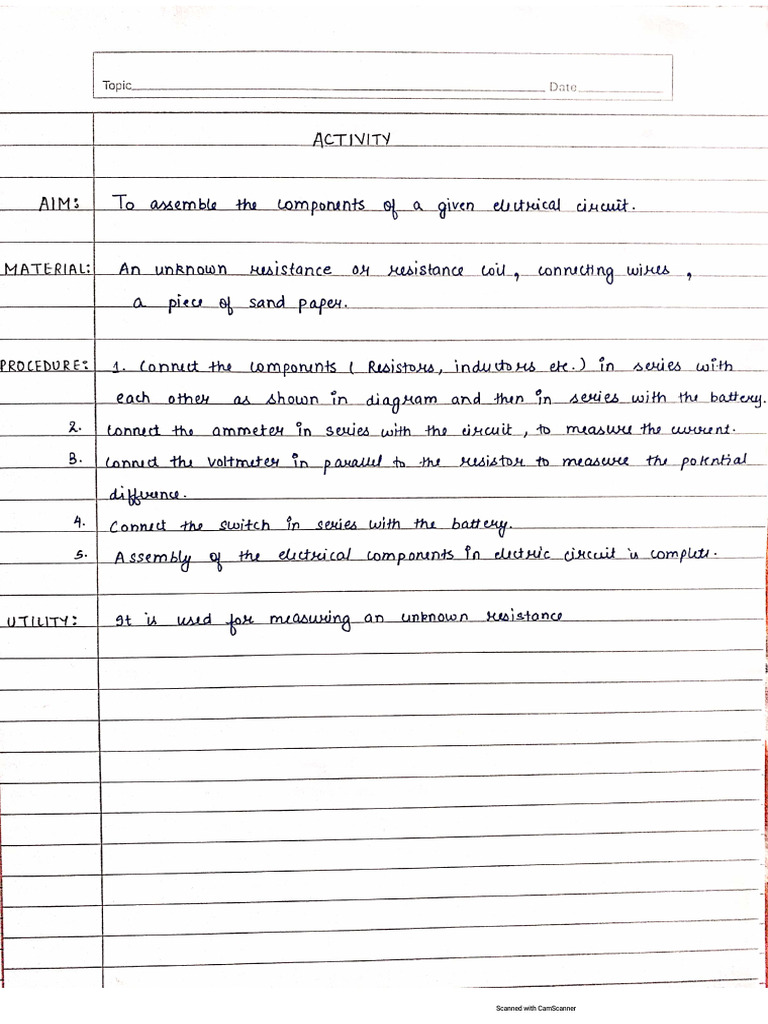 Topic Date
ACTIVITY
AIM: To assemble the components of a given electrical circuit.
MATERIAL: An unknown resistance or resistance coil, connecting wires,
a piece of sand paper.
PROCEDURE: 1. Connect the components ( Resistors, inductors etc.) in series with
each other as shown in diagram and then in series with the battery.
2. Connect the ammeter in series with the circuit, to measure the current.
3. Connect the voltmeter in parallel to the resistor to measure the potential
difference.
4. Connect the switch in series with the battery.
5. Assembly of the electrical components in electric circuit is complete.
UTILITY: It is used for measuring an unknown resistance
Scanned with CamScanner